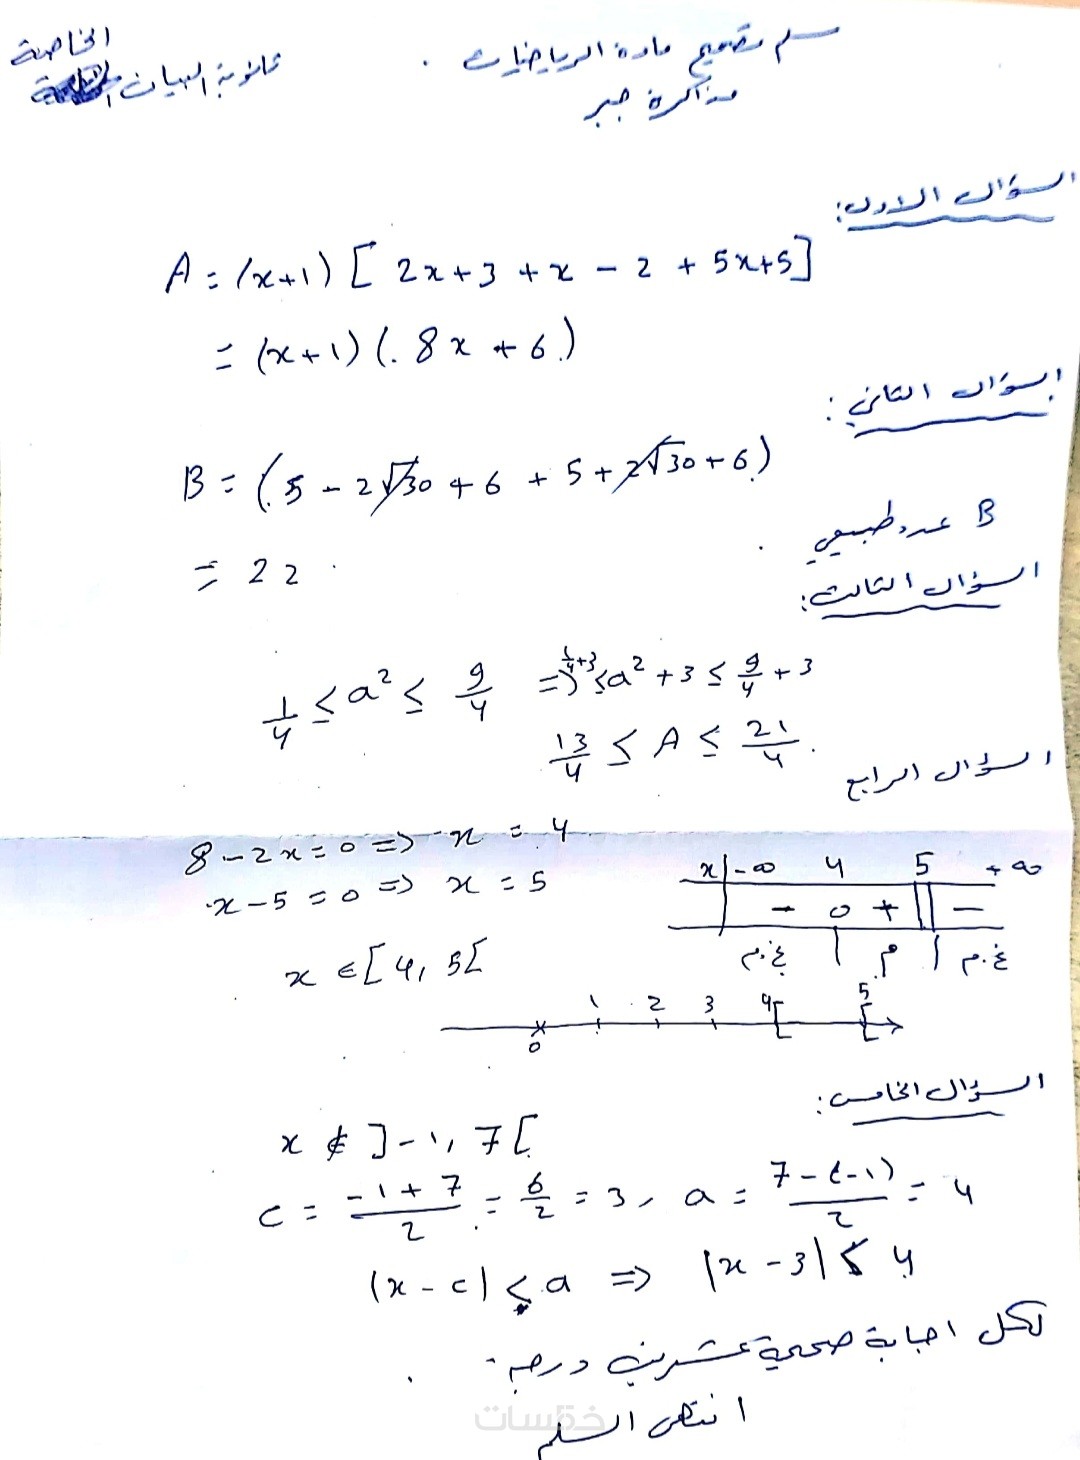 سلم تصحيح مادة الرياضيات .
الخاصة
ثانوية البيان
مذاكرة جبر
السؤال الاول:
A = (x+1) [ 2x+3 + x - 2 + 5x+5 ]
= (x+1) (8x + 6)
السؤال الثاني:
B = (5 - 2√30 + 6 + 5 + 2√30 + 6)
B عدد طبيعي .
= 22
السؤال الثالث:
1/4 ≤ a² ≤ 9/4 => 1/4+3 ≤ a² + 3 ≤ 9/4 + 3
13/4 ≤ A ≤ 21/4 .
السؤال الرابع
8 - 2x = 0 => x = 4
x - 5 = 0 => x = 5
x -∞ 4 5 +∞
- 0 + || -
غ.م | م | غ.م
x ∈ [4, 5[
0 1 2 3 4[ 5[
السؤال الخامس:
x ∉ ]-1, 7[
c = (-1+7)/2 = 6/2 = 3, a = (7-(-1))/2 = 4
|x - c| ≤ a => |x - 3| ≤ 4
لكل اجابة صحيحة عشرين درجة .
انتهى السلم
خمسات